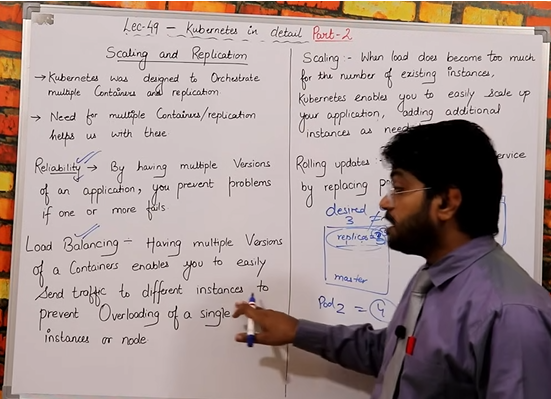 Lec-49 - Kubernetes in detail Part-2
Scaling and Replication
→ Kubernetes was designed to Orchestrate
multiple Containers and replication.
→ Need for multiple Containers/replication
helps us with these.
Reliability → By having multiple Versions
of an application, you prevent problems
if one or more fails.
Load Balancing :- Having multiple Versions
of a Containers enables you to easily
Send traffic to different instances to
prevent Overloading of a single
instances or node
Scaling :- When load does become too much
for the number of existing instances,
Kubernetes enables you to easily Scale up
your application, adding additional
instances as
Rolling updates :- service
by replacing
desired
3
replicas
master
Pod 2 = 4